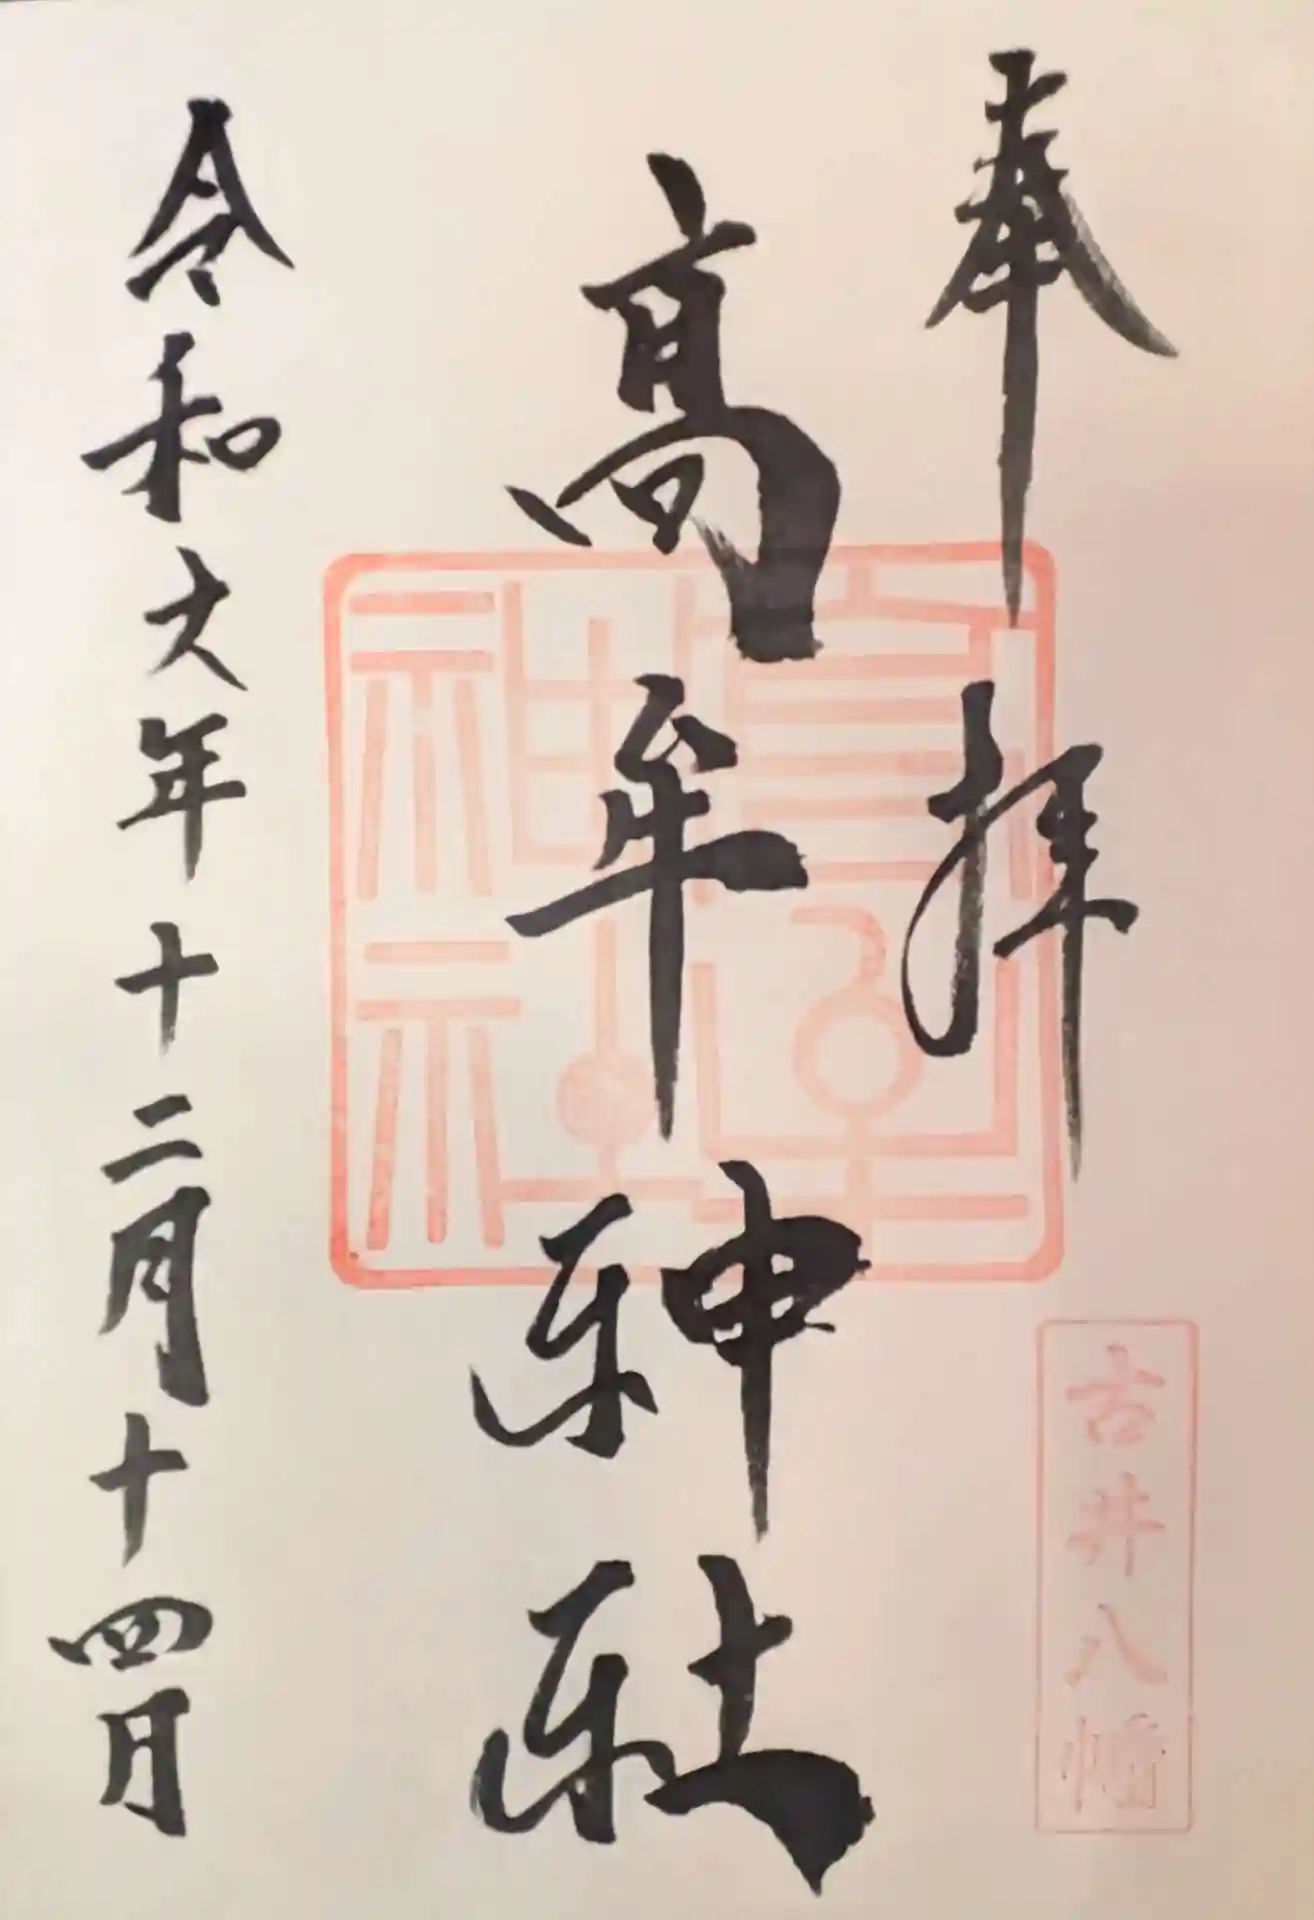 奉拝
古井八幡
高牟神社
高牟神社
令和六年十二月十四日